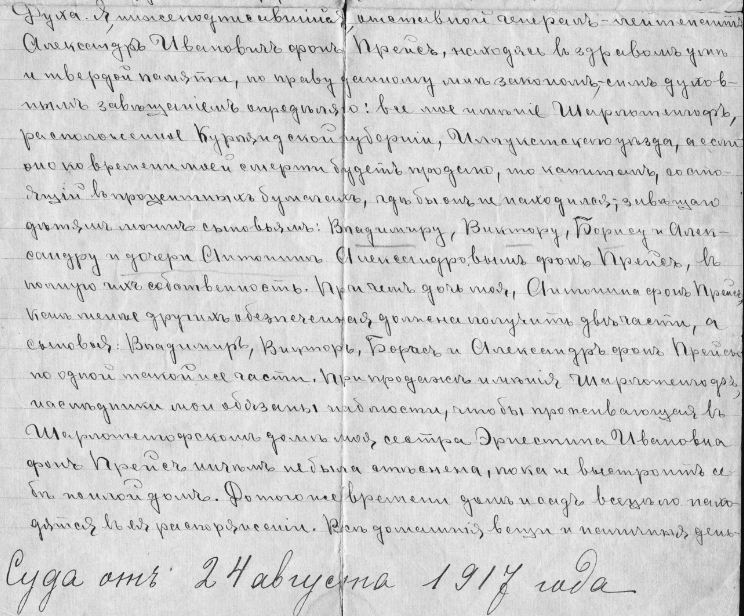 Духа. Я, нижеподписавшійся, отставной генералъ-лейтенантъ
Александръ Ивановичъ фонъ Прейсъ, находясь въ здравомъ умѣ
и твердой памяти, по праву данному мнѣ закономъ, симъ духов-
нымъ завѣщаніемъ опредѣляю: все мое имѣніе Шарлотенгофъ,
расположенное Курляндской губерніи, Иллукстскаго уѣзда, а если
оно ко времени моей смерти будетъ продано, то капиталъ, состо-
ящій въ процентныхъ бумагахъ, гдѣ бы онъ не находился, завѣщаю
дѣтямъ моимъ сыновьямъ: Владимиру, Виктору, Борису и Алек-
сандру и дочери Антонинѣ Александровымъ фонъ Прейсъ, въ
полную ихъ собственность. При чемъ дочь моя, Антонина фонъ Прейсъ,
какъ менѣе другихъ обезпеченная, должна получить двѣ части, а
сыновья: Владимиръ, Викторъ, Борисъ и Александръ фонъ Прейсъ
по одной такой же части. При продажѣ имѣнія Шарлотенгофъ,
наслѣдники мои обязаны наблюсти, чтобы проживающая въ
Шарлотенгофскомъ домѣ моя сестра Эрнестина Ивановна
фонъ Прейсъ ничѣмъ не была стѣснена, пока не выстроитъ се-
бѣ жилой домъ. До того же времени домъ и садъ всецѣло нахо-
дятся въ ея распоряженіи. Всѣ домашнія вещи и наличныя день-
Суда отъ 24 августа 1917 года